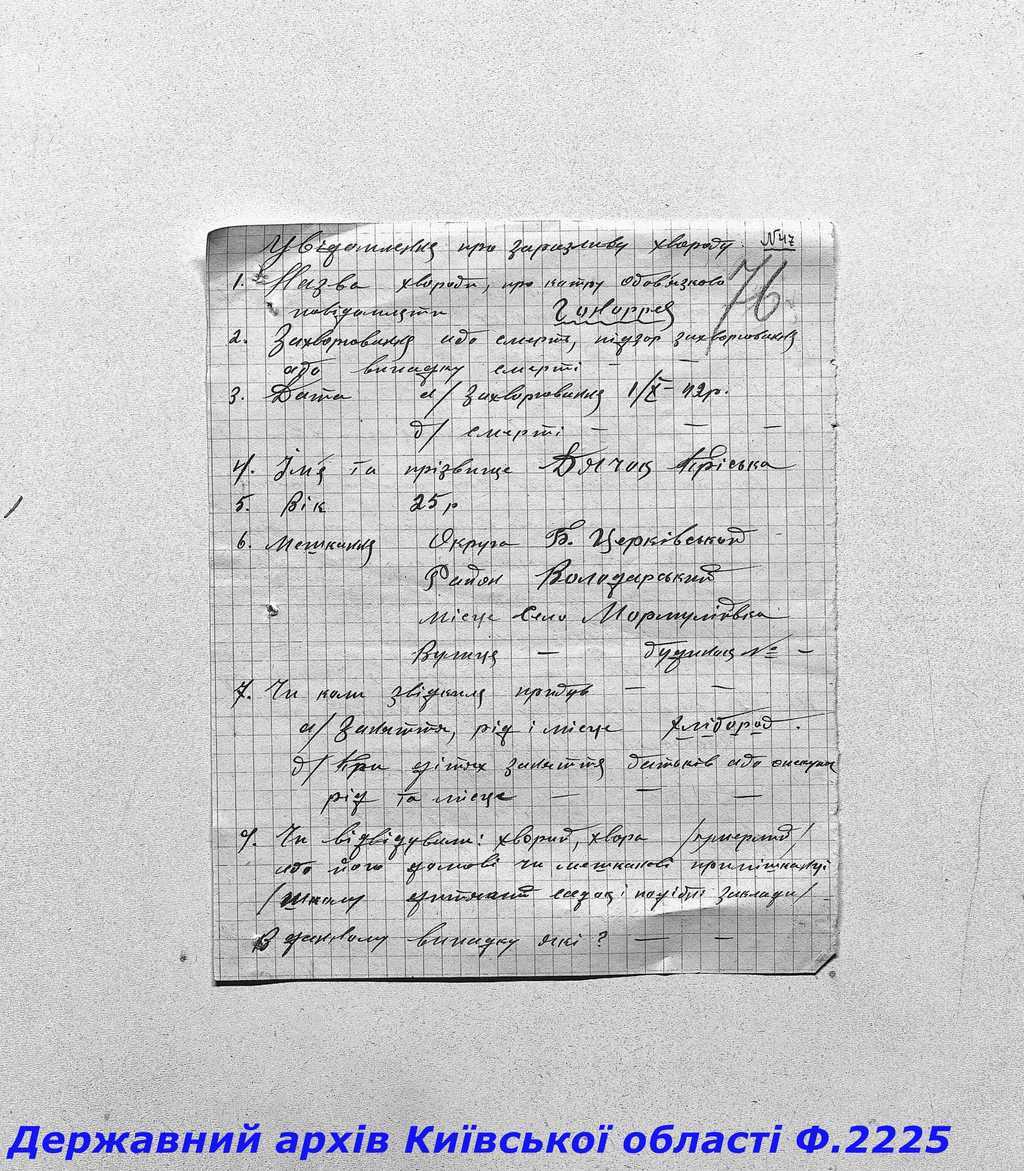 Увідомлення про заразливу хворобу. №47
76
1. Назва хвороби, про котру обов'язково
повідомляти Гоноррея
2. Захворювання або смерть, підзор захворювання
або випадку смерті — —
3. Дата а/ Захворювання 1/X - 42р.
б/ смерті — — —
4. Ім'я та прізвище Дячок Пріська
5. Вік 25р
6. Мешкання Округа Б. Церківський
Район Володарський
місце Село Мармуліївка
Вулиця — будинок № —
7. Чи коли звідкиля прибув — —
а/ Заняття, рід і місце хлібороб.
б/ При дітях заняття батьків або опікуна
рід та місце — — —
9. Чи відвідували: хворий, хвора /померлий/
або його домові чи мешканові
/школу дитячий садок і подібні заклади/ —
В данному випадку які? — —
Державний архів Київської області Ф.2225